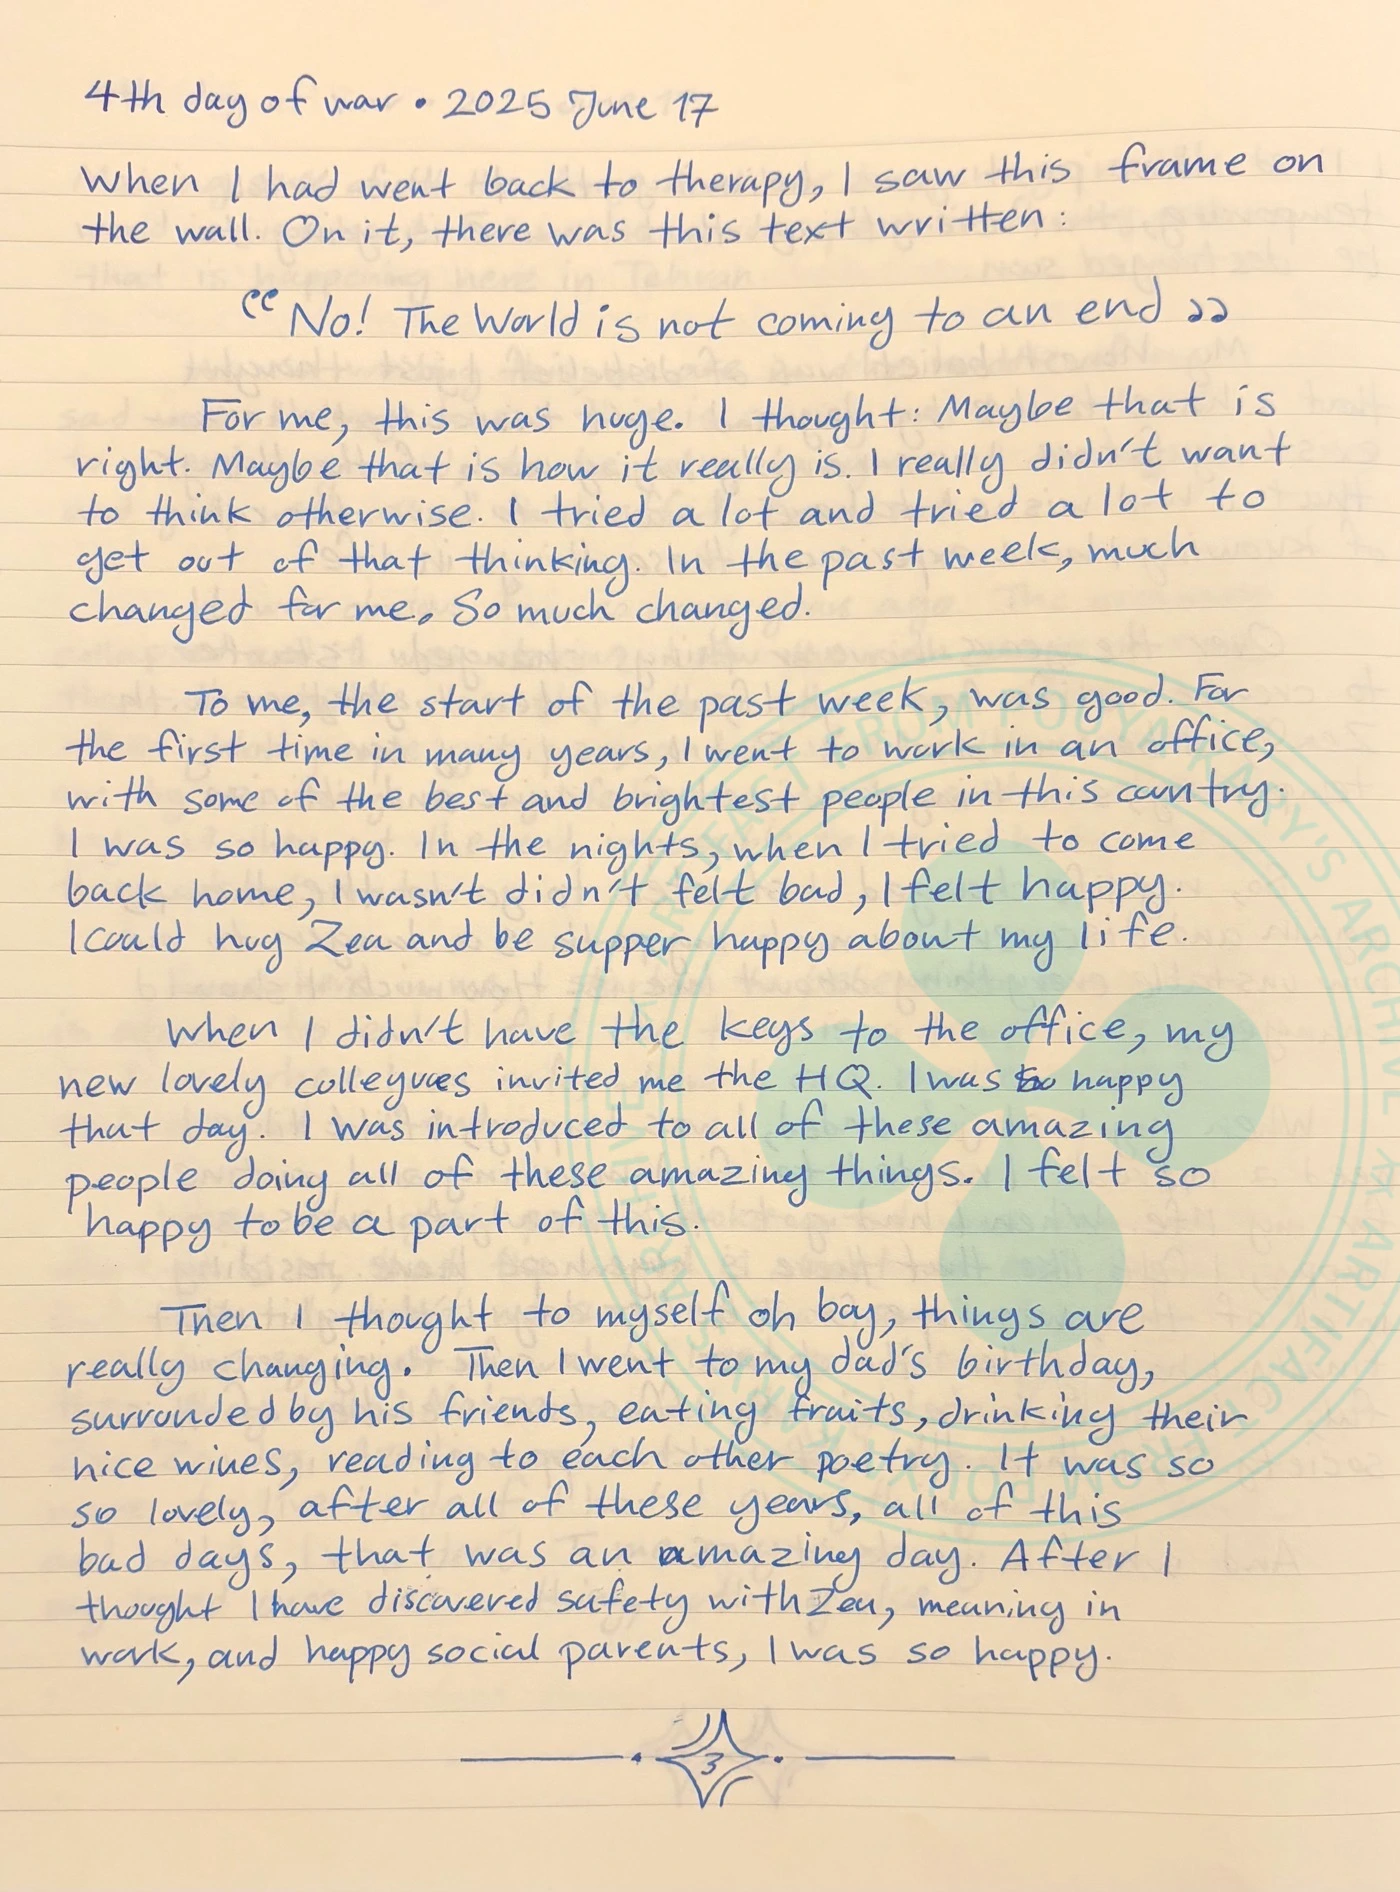 4th day of war • 2025 June 17
When I had went back to therapy, I saw this frame on
the wall. On it, there was this text written:
“ No! The World is not coming to an end ”
For me, this was huge. I thought: Maybe that is
right. Maybe that is how it really is. I really didn't want
to think otherwise. I tried a lot and tried a lot to
get out of that thinking. In the past week, much
changed for me. So much changed.
To me, the start of the past week, was good. For
the first time in many years, I went to work in an office,
with some of the best and brightest people in this country.
I was so happy. In the nights, when I tried to come
back home, I wasn't didn't felt bad, I felt happy.
I could hug Zea and be supper happy about my life.
When I didn't have the keys to the office, my
new lovely collegues invited me the HQ. I was so happy
that day. I was introduced to all of these amazing
people doing all of these amazing things. I felt so
happy to be a part of this.
Then I thought to myself oh boy, things are
really changing. Then I went to my dad's birthday,
surrounded by his friends, eating fruits, drinking their
nice wines, reading to each other poetry. It was so
so lovely, after all of these years, all of this
bad days, that was an amazing day. After I
thought I have discovered safety with Zea, meaning in
work, and happy social parents, I was so happy.
3